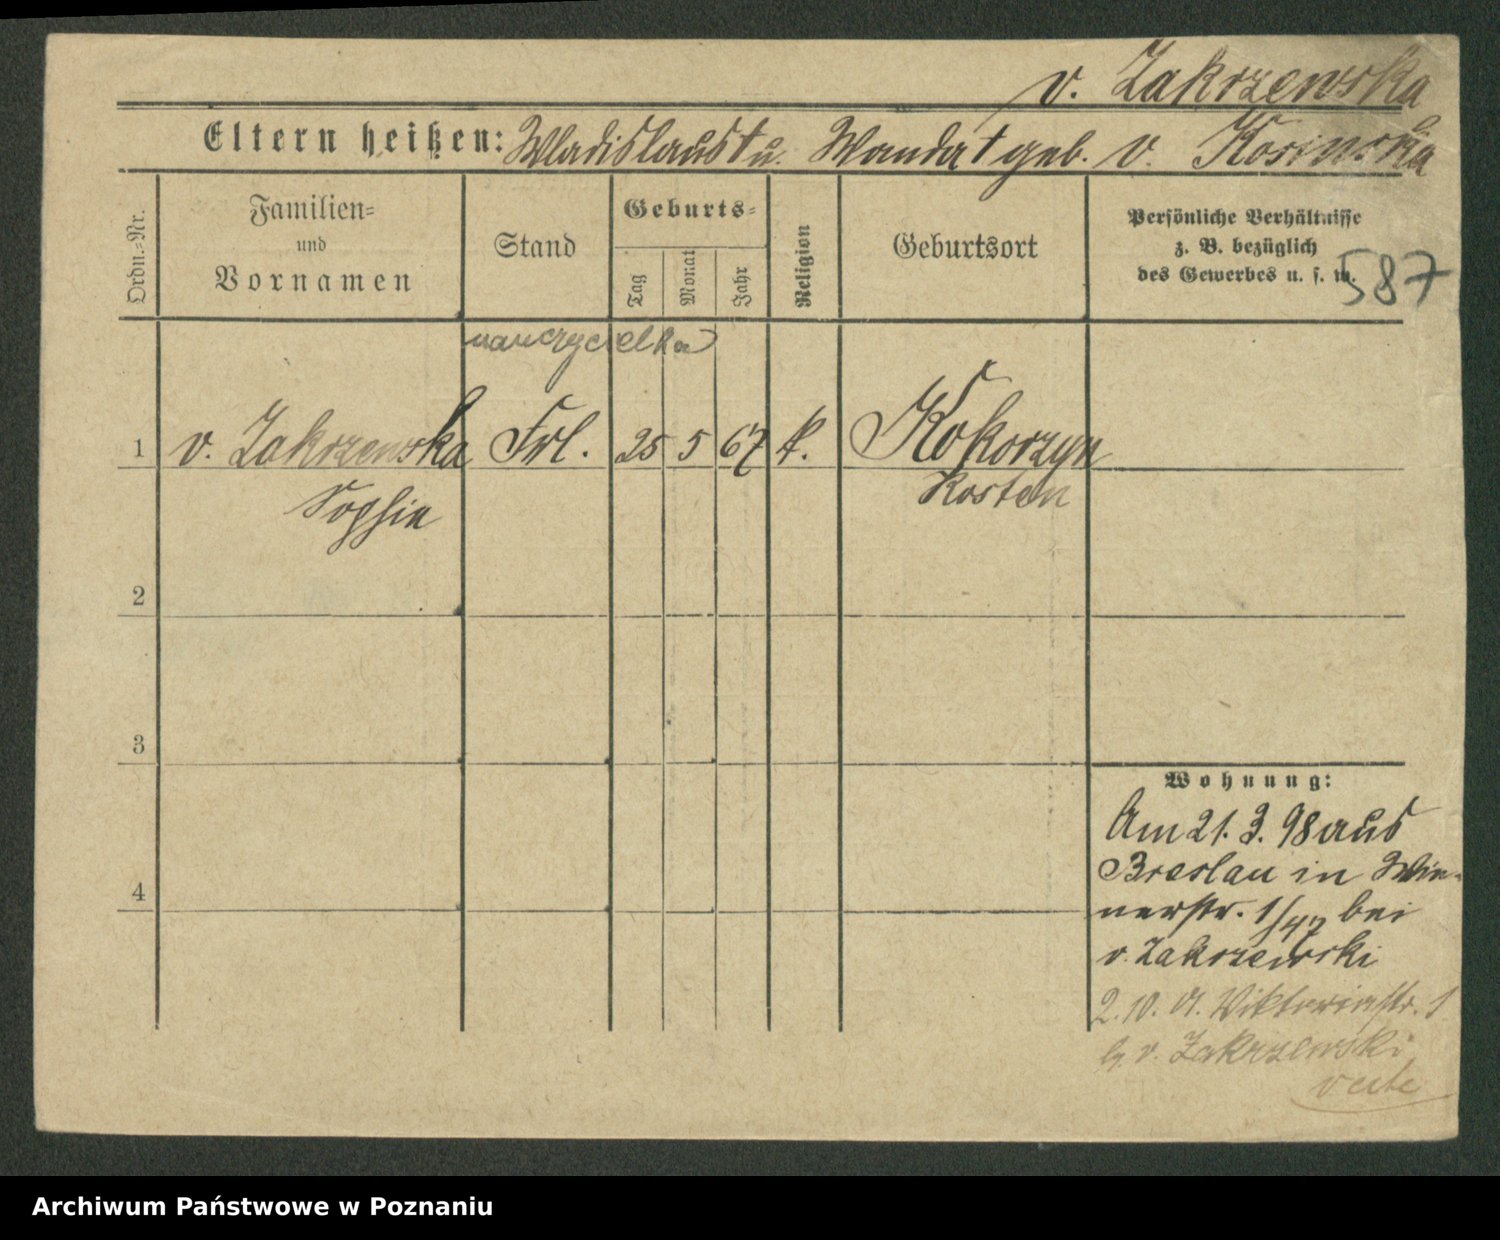 v. Zakrzewska
Eltern heißen: Wladislaus † u. Wanda † geb. v. Kosinska
Ordn.-Nr.
Familien-
und
Vornamen
Stand
Geburts-
Tag
Monat
Jahr
Religion
Geburtsort
Persönliche Verhältnisse
z. B. bezüglich
des Gewerbes u. s. w.
587
nauczycielka
1 v. Zakrzewska Frl. 25 5 67 k. Kokorzyn
Sophie Kosten
2
3
4
Wohnung:
Am 21. 3. 98 aus
Breslau in Wie-
nerstr. 1/47 bei
v. Zakrzewski
2. 10. 01. Viktoriastr. 1
b. v. Zakrzewski
verte
Archiwum Państwowe w Poznaniu